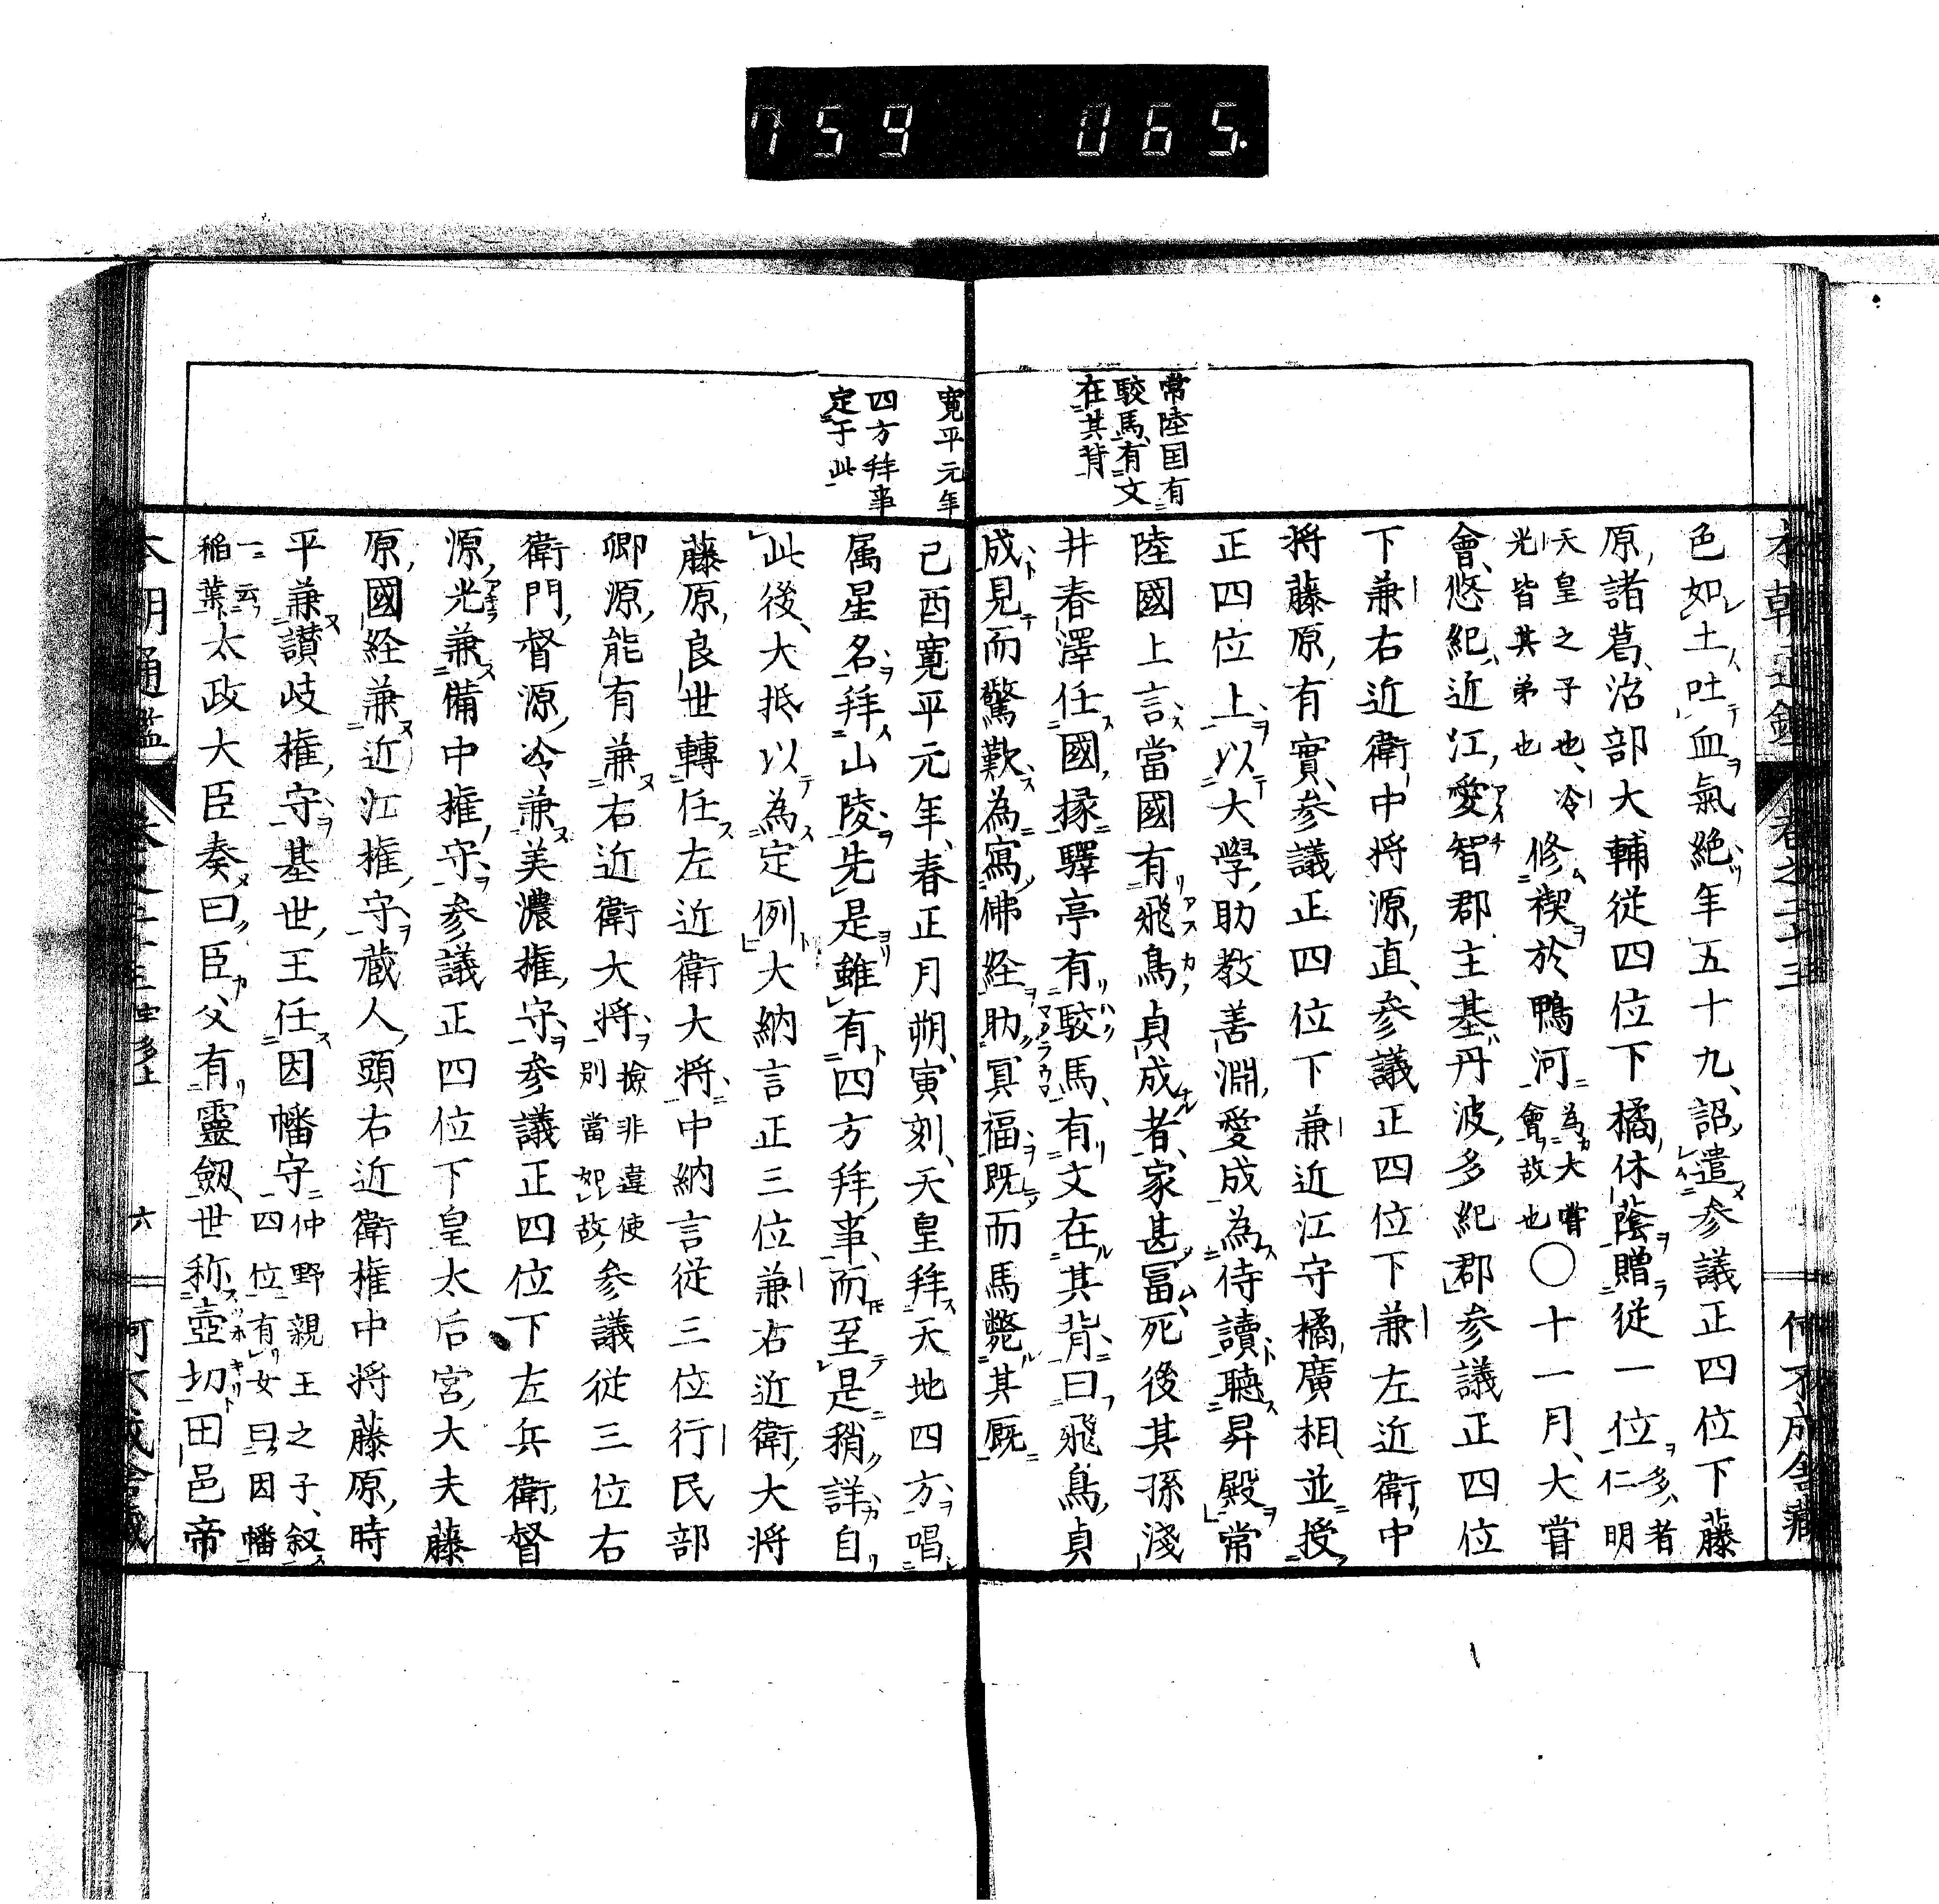 759 065.
常陸国有
駮馬有文
在其背
色如土吐血氣絶年五十九詔遣参議正四位下藤
原諸葛治部大輔従四位下橘休蔭贈従一位多者仁明
天皇之子也冷
光皆其弟也
修禊於鴨河為大嘗
會故也
〇十一月大嘗
會悠紀近江愛智郡主基丹波多紀郡参議正四位
下兼右近衛中将源直参議正四位下兼左近衛中
将藤原有實参議正四位下兼近江守橘廣相並授
正四位上以大學助教善淵愛成為侍讀聴昇殿常
陸國上言當國有飛鳥貞成者家甚冨死後其孫淺
井春澤任國掾驛亭有駮馬有文在其背曰飛鳥貞
成見而驚歎為寫佛経助冥福既而馬斃其厩
寛平元年
四方拜事
定于此
己酉寛平元年春正月朔寅刻天皇拜天地四方唱
属星名拜山陵先是雖有四方拜事而至是稍詳自
此後大抵以為定例大納言正三位兼右近衛大将
藤原良世轉任左近衛大将中納言従三位行民部
卿源能有兼右近衛大将検非違使
別當如故
参議従三位右
衛門督源冷兼美濃権守参議正四位下左兵衛督
源光兼備中権守参議正四位下皇太后宮大夫藤
原國経兼近江権守蔵人頭右近衛権中将藤原時
平兼讃岐権守基世王任因幡守仲野親王之子叙
四位有女曰因幡
一云
稲葉
太政大臣奏曰臣父有靈劔世称壺切田邑帝
本朝通鑑
六